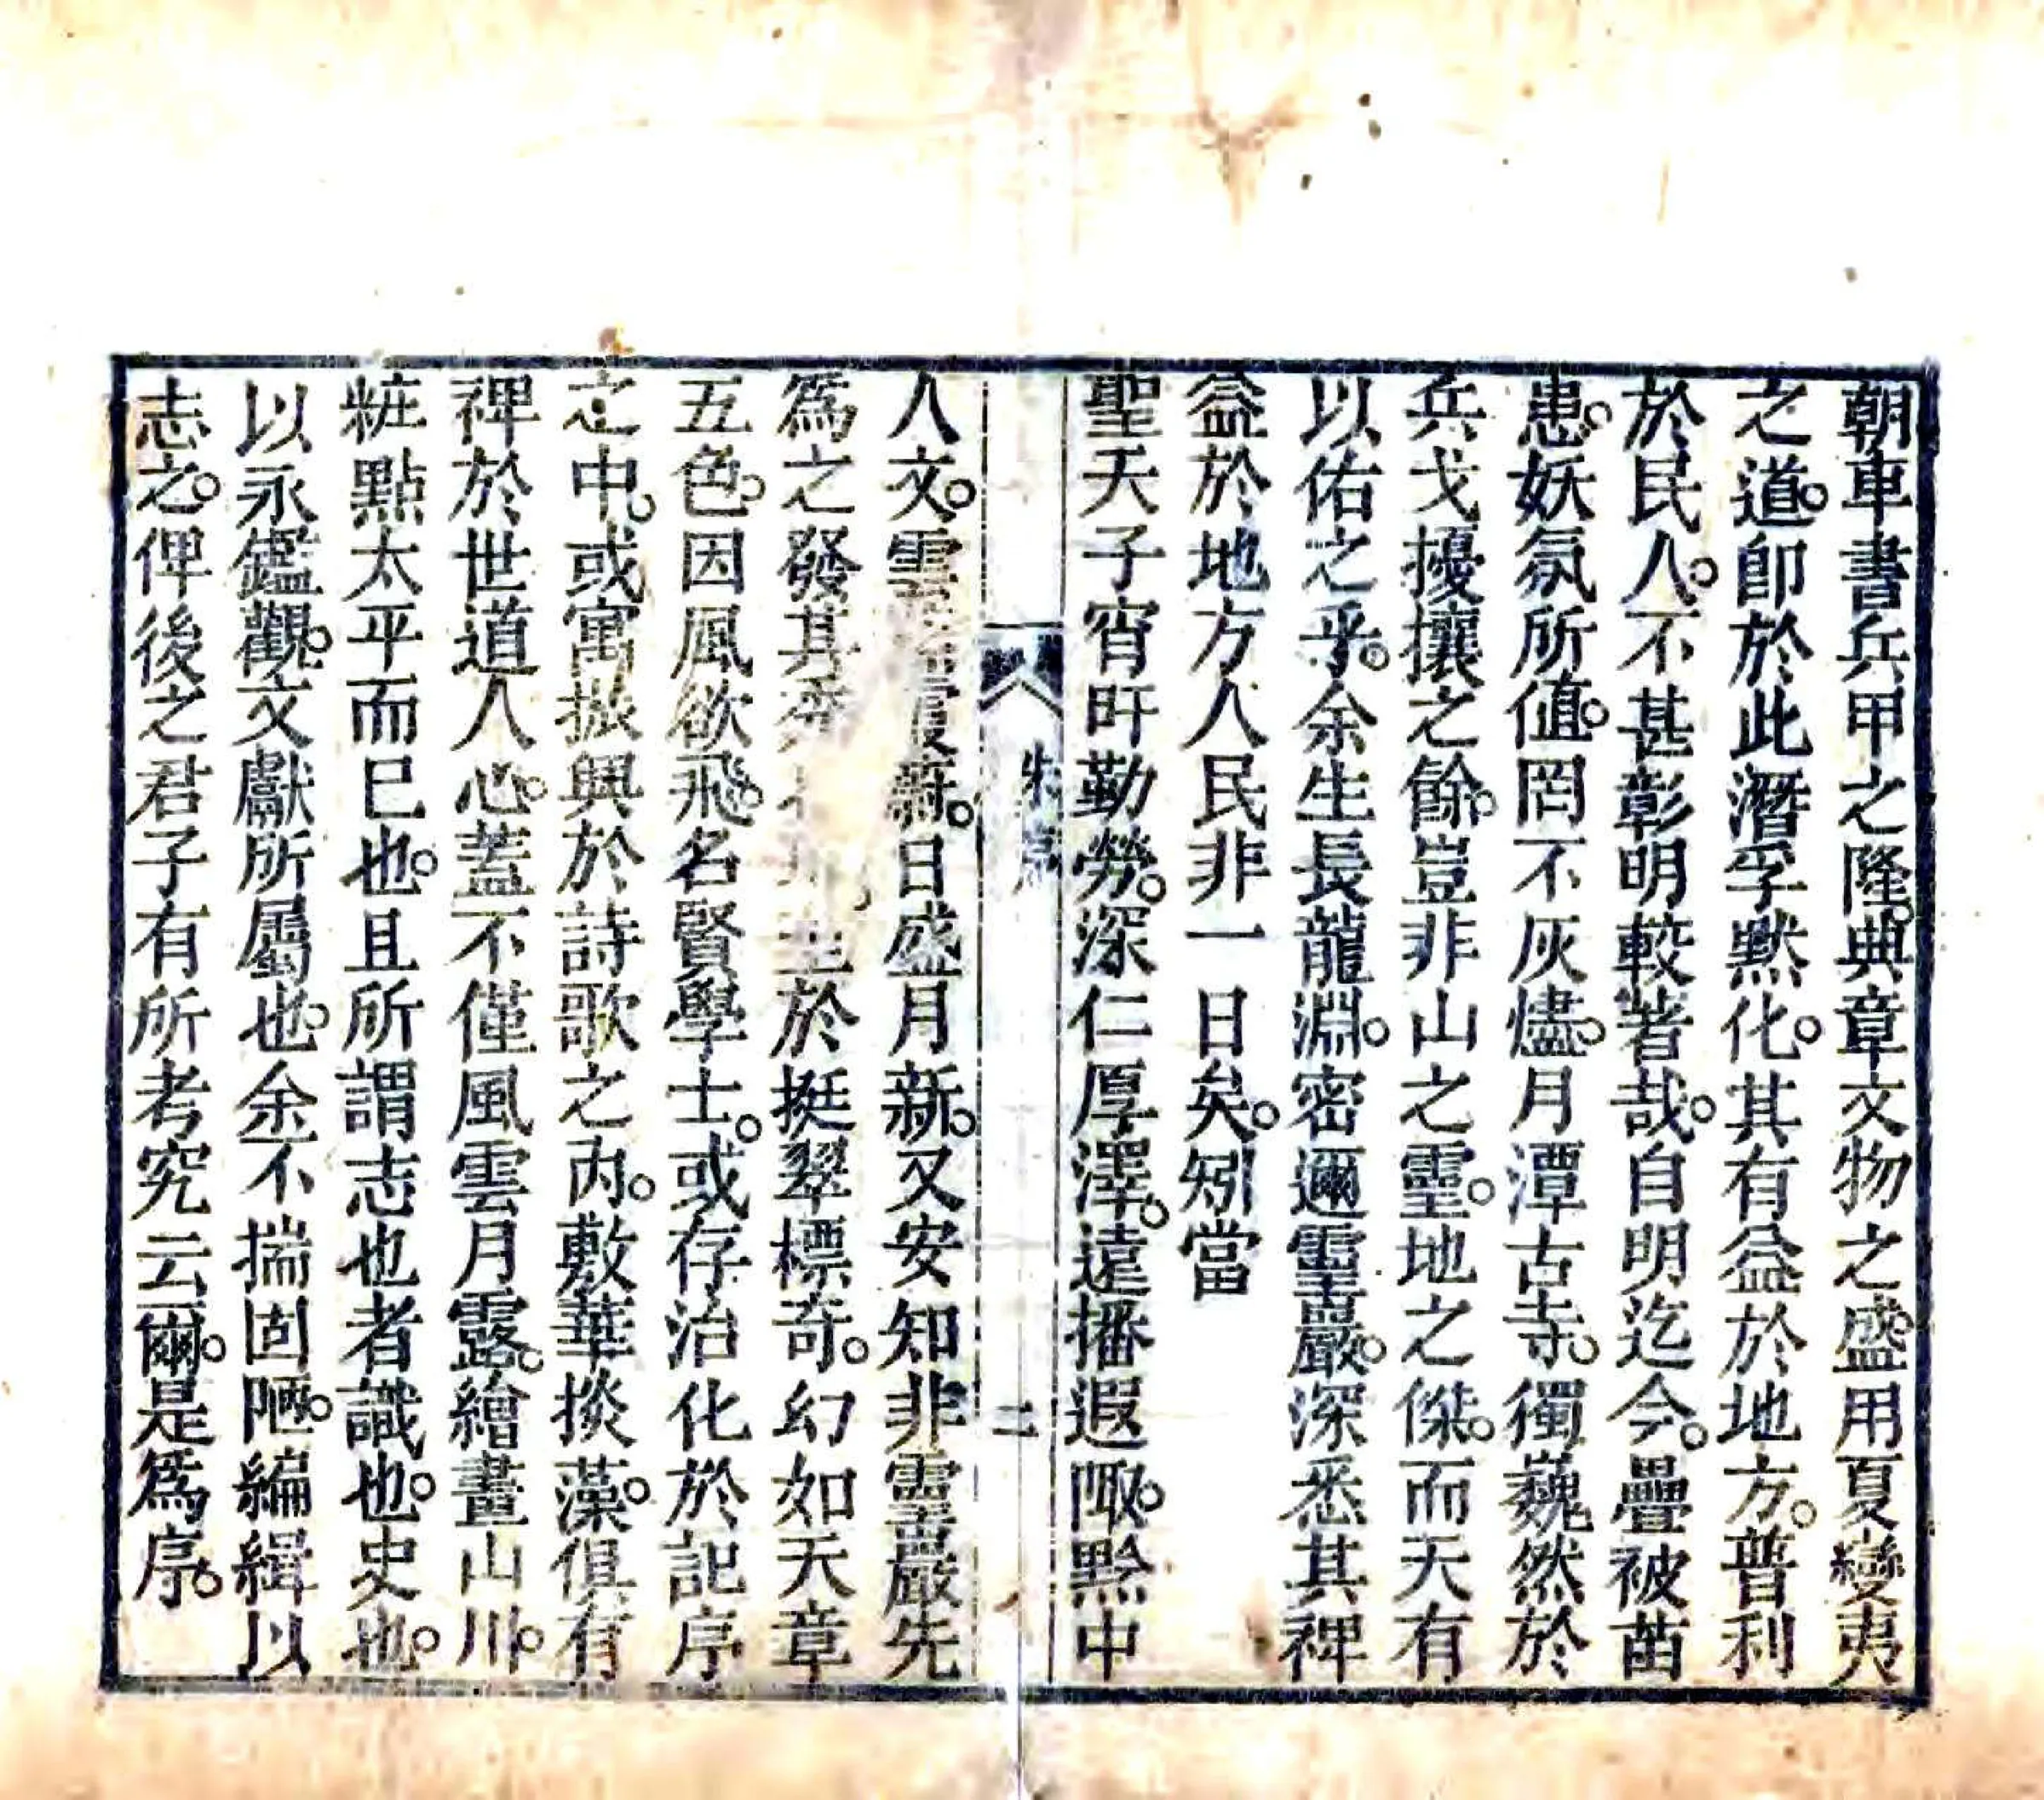 朝車書兵甲之隆。典章文物之盛。用夏變夷
之道。卽於此潛孚黙化。其有益於地方。普利
於民人。不甚彰明較著哉。自明迄今。疊被苗
患。妖氛所値。罔不灰燼。月潭古寺。獨巍然於
兵戈擾攘之餘。豈非山之靈。地之傑。而天有
以佑之乎。余生長龍淵。密邇靈巖。深悉其裨
益於地方人民非一日矣。矧當
聖天子宵旰勤勞。深仁厚澤。遠播遐陬。黔中
朱序
二
人文。雲霞蔚。日盛月新。又安知非靈巖先
爲之發其於挺翠標奇。幻如天章
五色。因風欲飛。名賢學士。或存治化於記序
之中。或寓振興於詩歌之內。敷華掞藻。俱有
裨於世道人心。蓋不僅風雲月露。繪畫山川。
粧點太平而已也。且所謂志也者識也。史也。
以永鑑觀。文獻所屬也。余不揣固陋。編緝以
志之。俾後之君子有所考究云爾。是爲序。